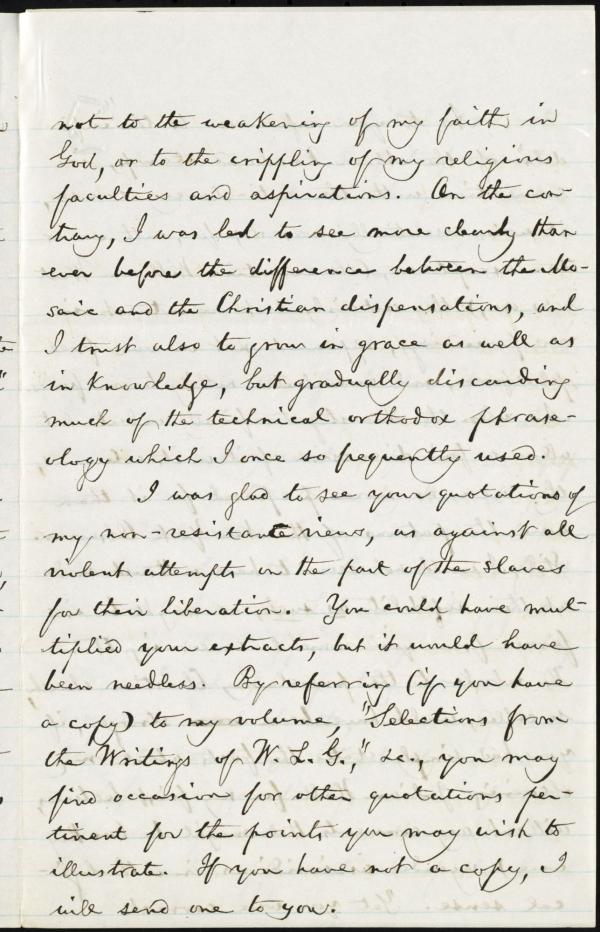 not to the weakening of my faith in
God, or to the crippling of my religious
faculties and aspirations. On the con-
trary, I was led to see more clearly than
ever before the difference between the Mo-
saic and the Christian dispensations, and
I trust also to grow in grace as well as
in knowledge, but gradually discarding
much of the technical orthodox phrase-
ology which I once so frequently used.
I was glad to see your quotations of
my non-resistance views, as against all
violent attempts on the part of the slaves
for their liberation. You could have mul-
tiplied your extracts, but it would have
been needless. By referring (if you have
a copy) to my volume, "Selections from
the Writings of W. L. G.," &c., you may
find occasion for other quotations per-
tinent for the points you may wish to
illustrate. If you have not a copy, I
will send one to you.